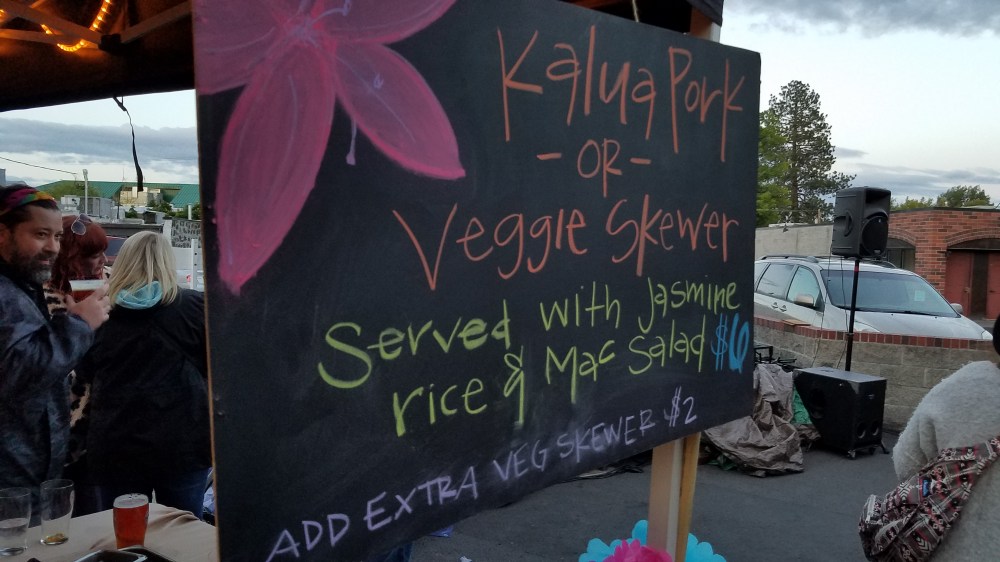 Kalua Pork
- OR -
Veggie Skewer
Served with Jasmine
rice & Mac Salad $6
ADD EXTRA VEG SKEWER $2